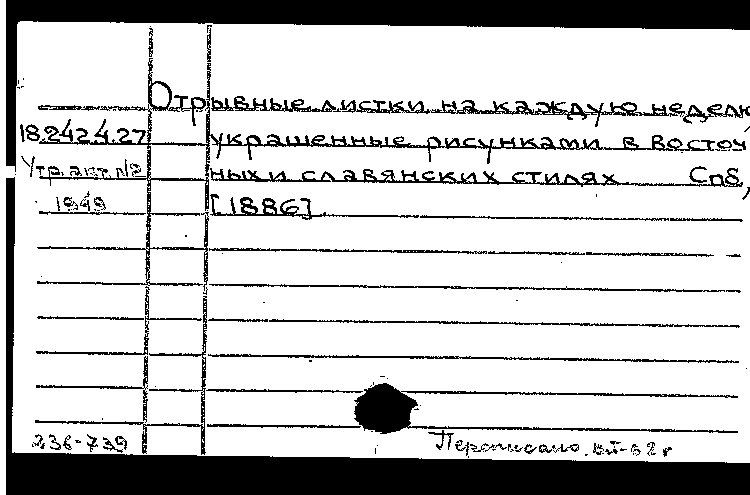 Отрывные листки на каждую неделю
18.242.4.27 украшенные рисунками в восточ-
Утр. акт. №2 ных и славянских стилях Спб,
1949 [1886].
236-739 Переписано. VII-62 г